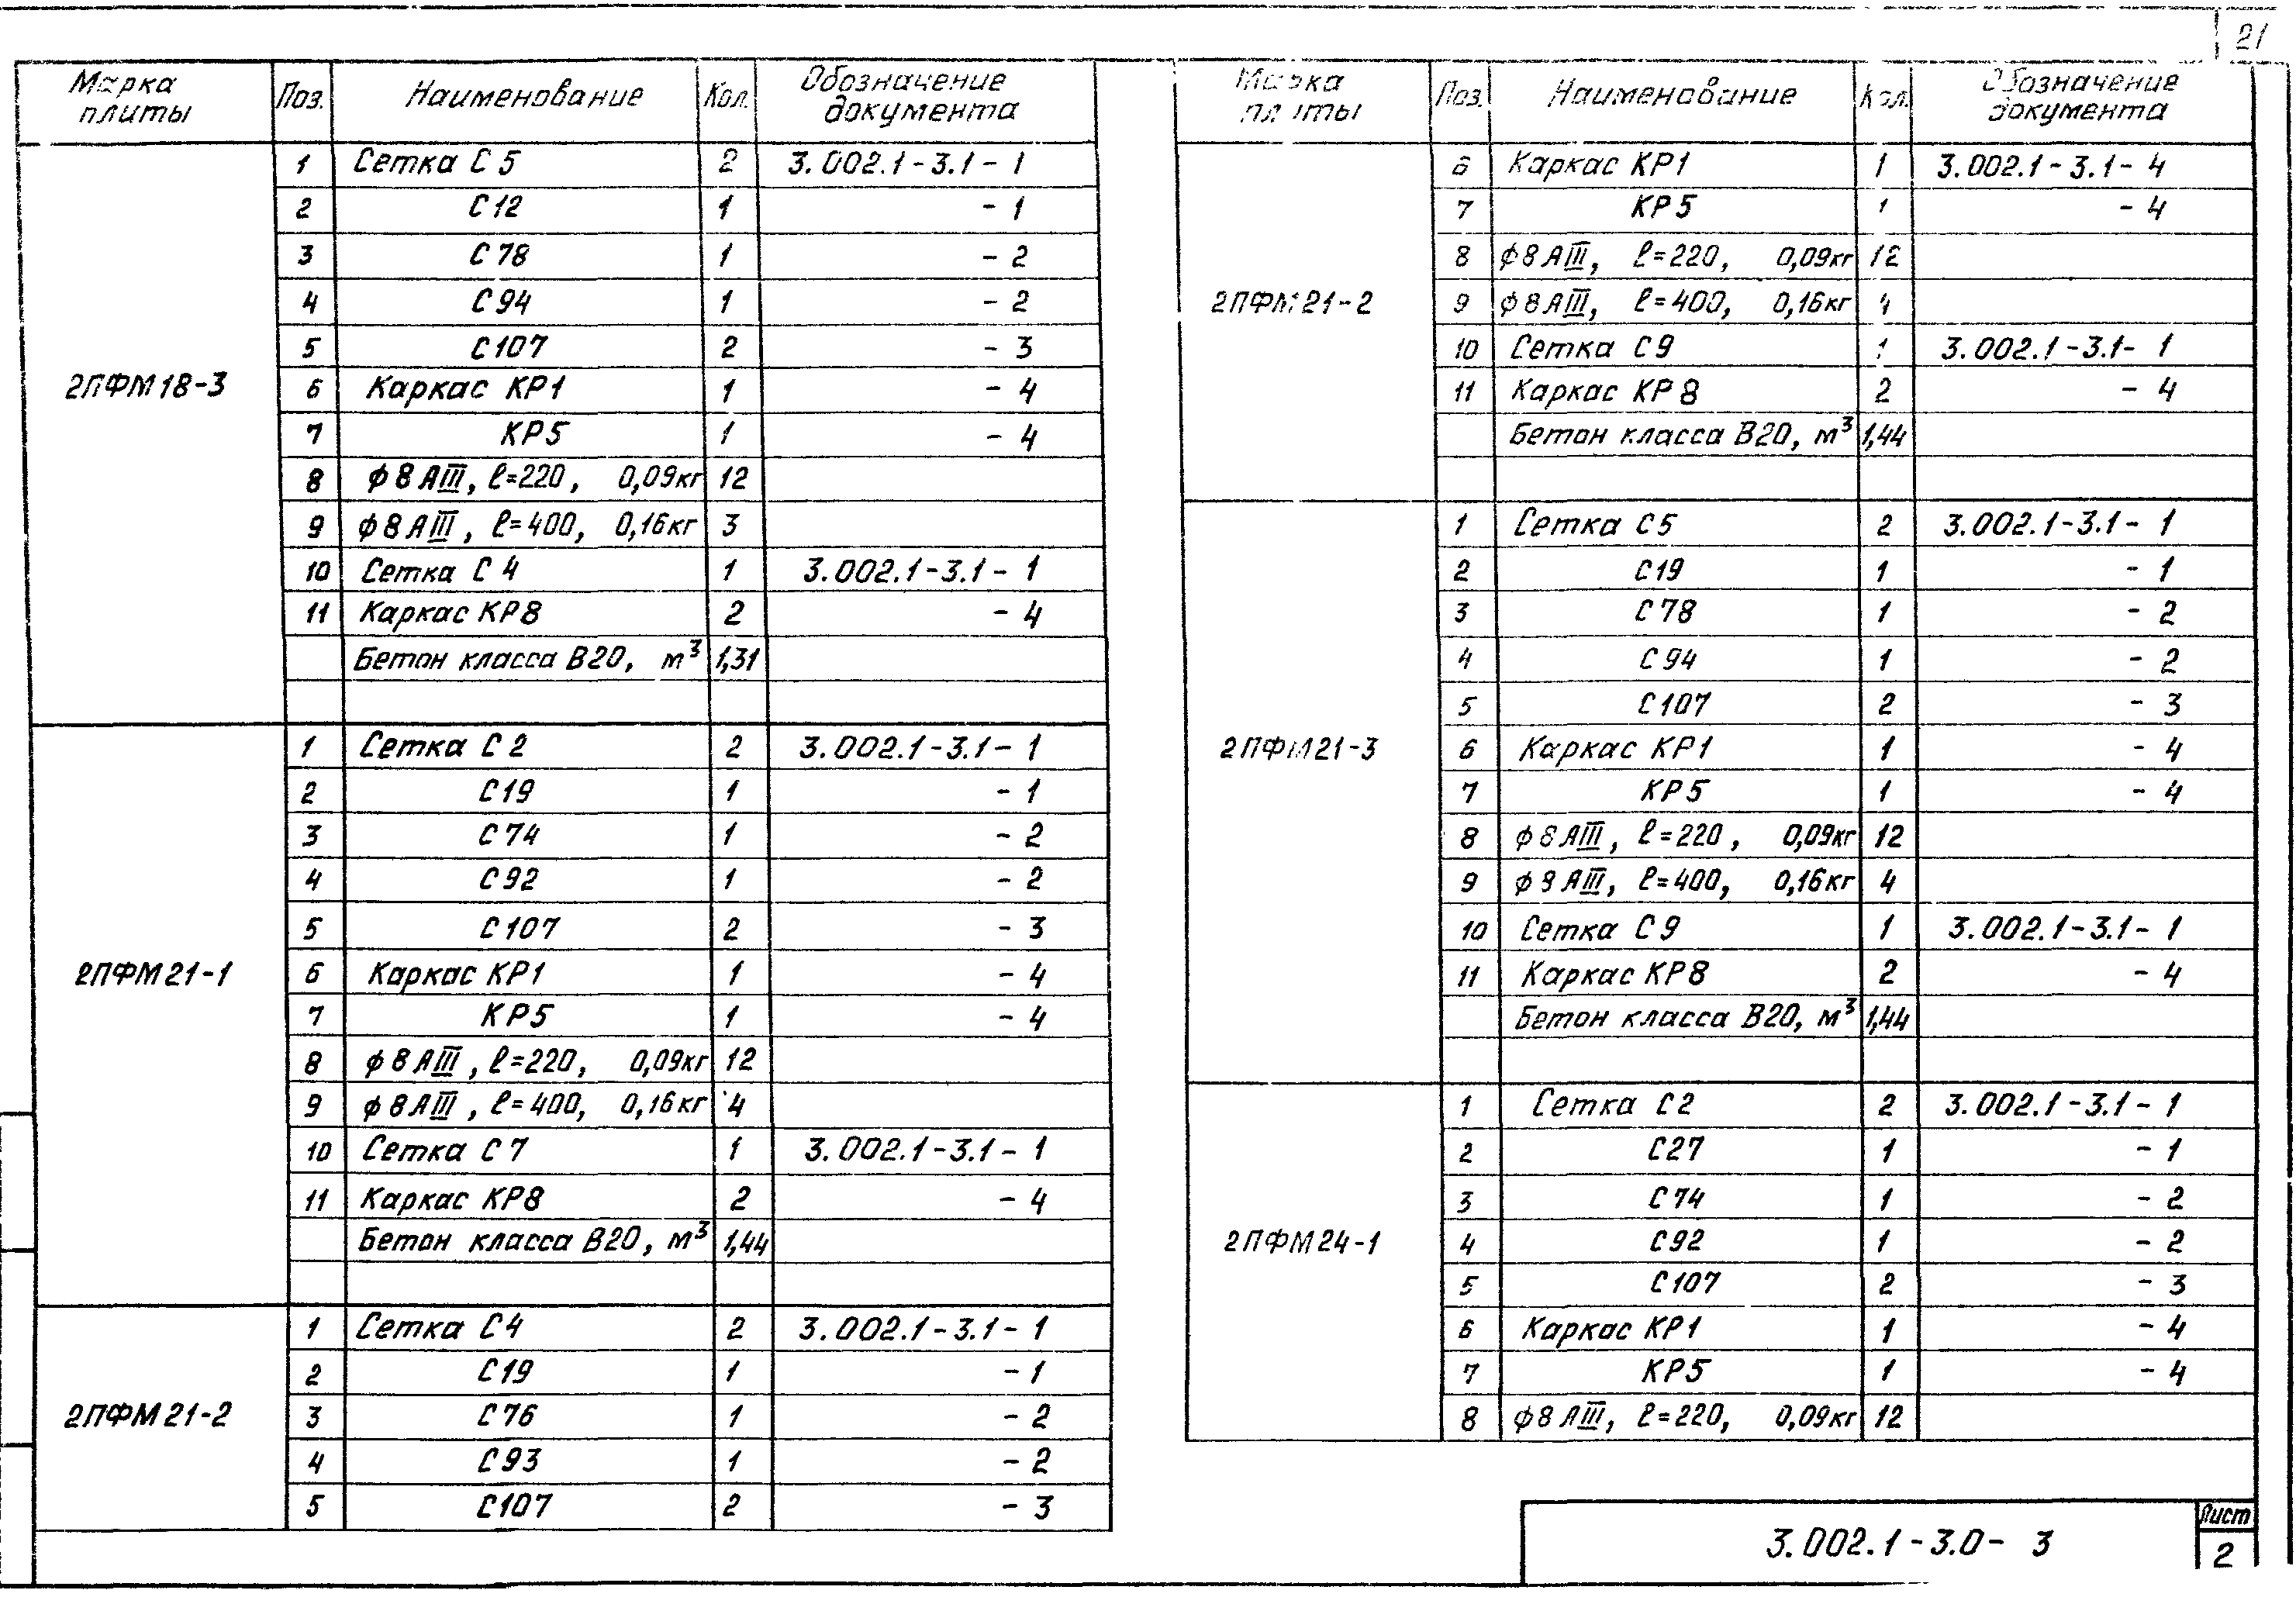 21
Марка плиты Поз. Наименование Кол. Обозначение документа
2ПФМ18-3
1 Сетка С5 2 3.002.1-3.1-1
2 С12 1 -1
3 С78 1 -2
4 С94 1 -2
5 С107 2 -3
6 Каркас КР1 1 -4
7 КР5 1 -4
8 ϕ8АIII, ℓ=220, 0,09кг 12
9 ϕ8АIII, ℓ=400, 0,16кг 3
10 Сетка С4 1 3.002.1-3.1-1
11 Каркас КР8 2 -4
Бетон класса В20, м³ 1,31
2ПФМ21-1
1 Сетка С2 2 3.002.1-3.1-1
2 С19 1 -1
3 С74 1 -2
4 С92 1 -2
5 С107 2 -3
6 Каркас КР1 1 -4
7 КР5 1 -4
8 ϕ8АIII, ℓ=220, 0,09кг 12
9 ϕ8АIII, ℓ=400, 0,16кг 4
10 Сетка С7 1 3.002.1-3.1-1
11 Каркас КР8 2 -4
Бетон класса В20, м³ 1,44
2ПФМ21-2
1 Сетка С4 2 3.002.1-3.1-1
2 С19 1 -1
3 С76 1 -2
4 С93 1 -2
5 С107 2 -3
Марка плиты Поз. Наименование Кол. Обозначение документа
2ПФМ21-2
6 Каркас КР1 1 3.002.1-3.1-4
7 КР5 1 -4
8 ϕ8АIII, ℓ=220, 0,09кг 12
9 ϕ8АIII, ℓ=400, 0,16кг 4
10 Сетка С9 1 3.002.1-3.1-1
11 Каркас КР8 2 -4
Бетон класса В20, м³ 1,44
2ПФМ21-3
1 Сетка С5 2 3.002.1-3.1-1
2 С19 1 -1
3 С78 1 -2
4 С94 1 -2
5 С107 2 -3
6 Каркас КР1 1 -4
7 КР5 1 -4
8 ϕ8АIII, ℓ=220, 0,09кг 12
9 ϕ8АIII, ℓ=400, 0,16кг 4
10 Сетка С9 1 3.002.1-3.1-1
11 Каркас КР8 2 -4
Бетон класса В20, м³ 1,44
2ПФМ24-1
1 Сетка С2 2 3.002.1-3.1-1
2 С27 1 -1
3 С74 1 -2
4 С92 1 -2
5 С107 2 -3
6 Каркас КР1 1 -4
7 КР5 1 -4
8 ϕ8АIII, ℓ=220, 0,09кг 12
3.002.1-3.0-3
Лист
2